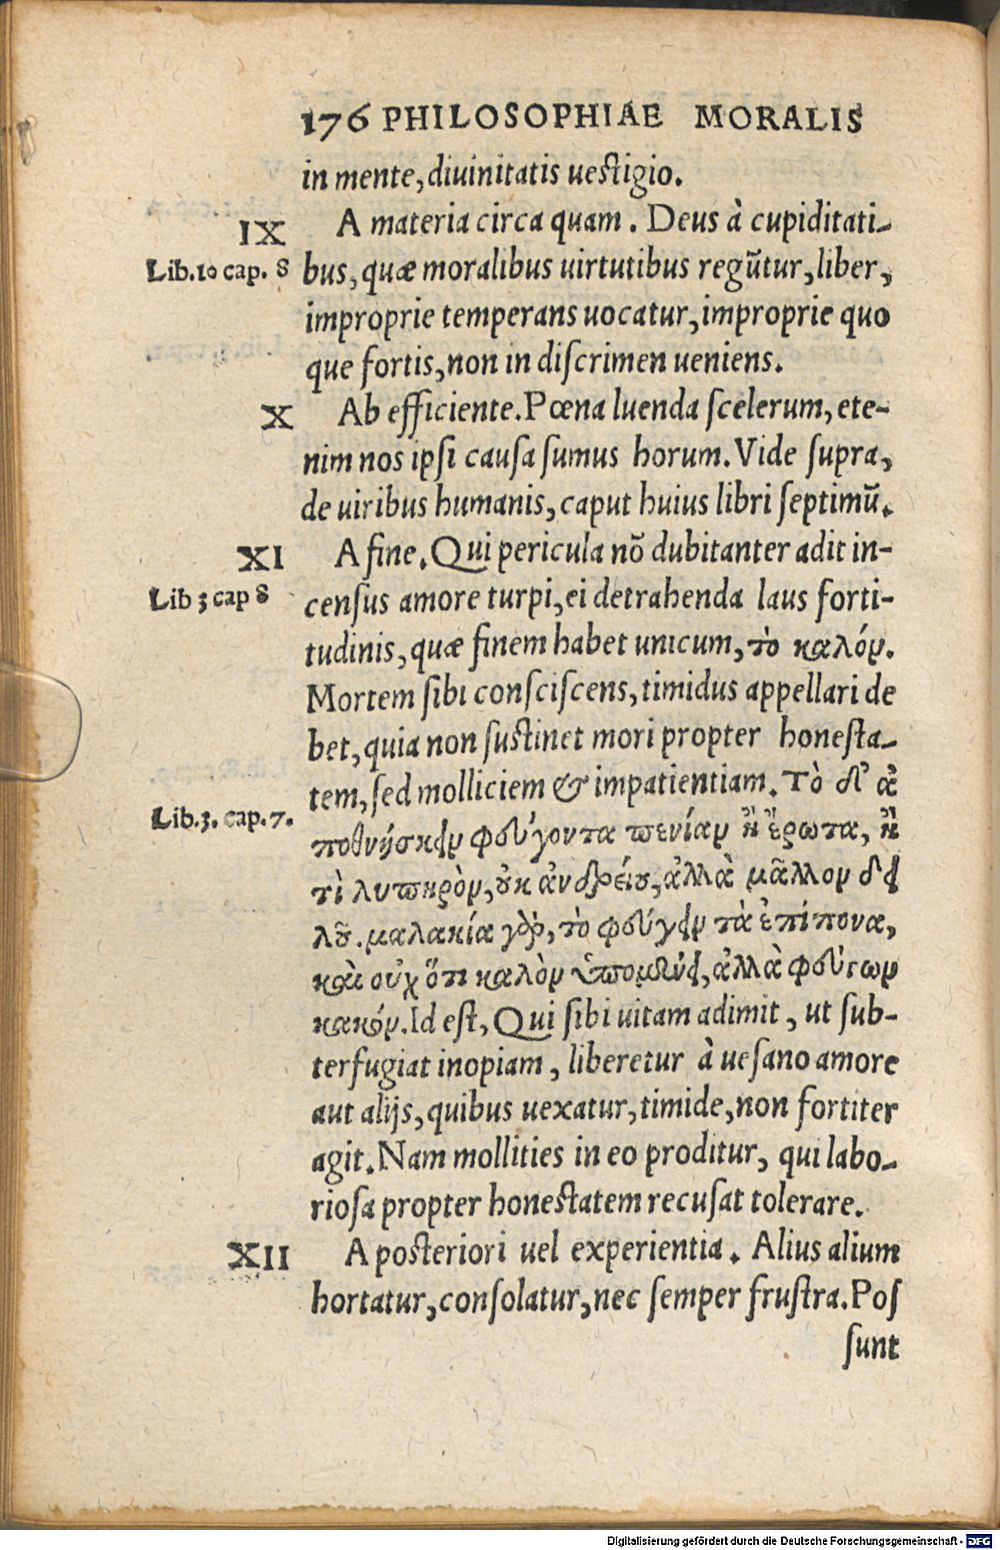 176 PHILOSOPHIAE MORALIS
in mente, diuinitatis uestigio.
IX A materia circa quam. Deus à cupiditati-
Lib. 10 cap. 8 bus, quæ moralibus uirtutibus regũtur, liber,
improprie temperans uocatur, improprie quo
que fortis, non in discrimen ueniens.
X Ab efficiente. Pœna luenda scelerum, ete-
nim nos ipsi causa sumus horum. Vide supra,
de uiribus humanis, caput huius libri septimũ.
XI A fine. Qui pericula nõ dubitanter adit in-
Lib 3 cap 8 census amore turpi, ei detrahenda laus forti-
tudinis, quæ finem habet unicum, τὸ καλόν.
Mortem sibi consciscens, timidus appellari de
bet, quia non sustinet mori propter honesta-
tem, sed molliciem & impatientiam. Τὸ δ' ἀ
Lib. 3. cap. 7. ποθνήσκειν φεύγοντα πενίαν ἢ ἔρωτα, ἢ
τὶ λυπηρὸν, οὐκ ἀνδρείου, ἀλλὰ μᾶλλον δει
λοῦ. μαλακία γὰρ, τὸ φεύγειν τὰ ἐπίπονα,
καὶ οὐχ ὅτι καλὸν ὑπομένει, ἀλλὰ φεύγων
κακόν. Id est, Qui sibi uitam adimit, ut sub-
terfugiat inopiam, liberetur à uesano amore
aut alijs, quibus uexatur, timide, non fortiter
agit. Nam mollities in eo proditur, qui labo-
riosa propter honestatem recusat tolerare.
XII A posteriori uel experientia. Alius alium
hortatur, consolatur, nec semper frustra. Pos
sunt
Digitalisierung gefördert durch die Deutsche Forschungsgemeinschaft - DFG